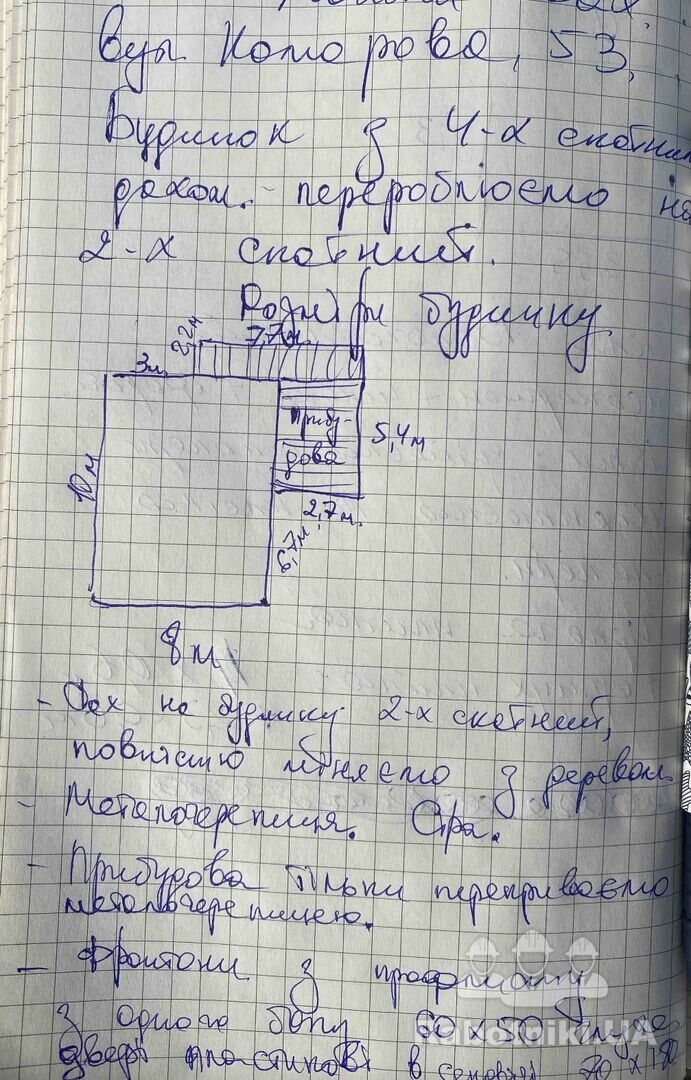 вул Комарова, 53,
Будинок з 4-х скатним
дахом. - переробляємо на
2-х скатний.
Розміри будинку
7,7м.
2,2м
3м.
Прибу-
дова
5,4м
10м
2,7м.
6,7м.
8м.
- Дах на будинку 2-х скатний,
повністю міняємо з деревом.
- Металочерепиця. Сіра.
- Прибудова тільки перекриваємо
металочерепицею.
- Фронтони з профнастилу
з одного боку 60 х 50 буде
двері пластикові в 70 х 180
Rabotniki.UA